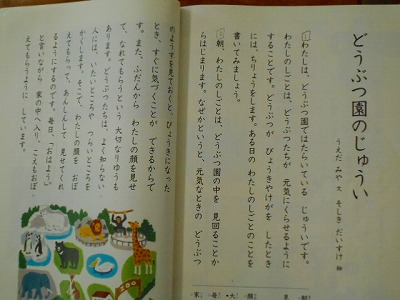 どうぶつ園のじゅうい
うえだ みや 文 そしき だいすけ 絵
1 わたしは、どうぶつ園ではたらいている じゅういです。
わたしのしごとは、どうぶつたちが 元気にくらせるように
することです。どうぶつが びょうきやけがを したとき
には、ちりょうをします。ある日の わたしのしごとのことを
書いてみましょう。
朝、わたしのしごとは、どうぶつ園の中を 見回ることか
らはじまります。なぜかというと、元気なときの どうぶつ
のようすを見ておくと、びょうきになった
とき、すぐに気づくことが できるからで
す。また、ふだんから わたしの顔を見せ
て、なれてもらうという 大切なりゆうも
あります。どうぶつたちは、よく知らない
人には、いたいところや つらいところを
かくします。そこで、わたしの顔を おぼ
えてもらって、あんしんして 見せてくれ
るようにするのです。毎日、「おはよう」
と言いながら 家の中へ入り、こえもおぼ
えてもらうようにしています。
朝
顔
大
毎
家